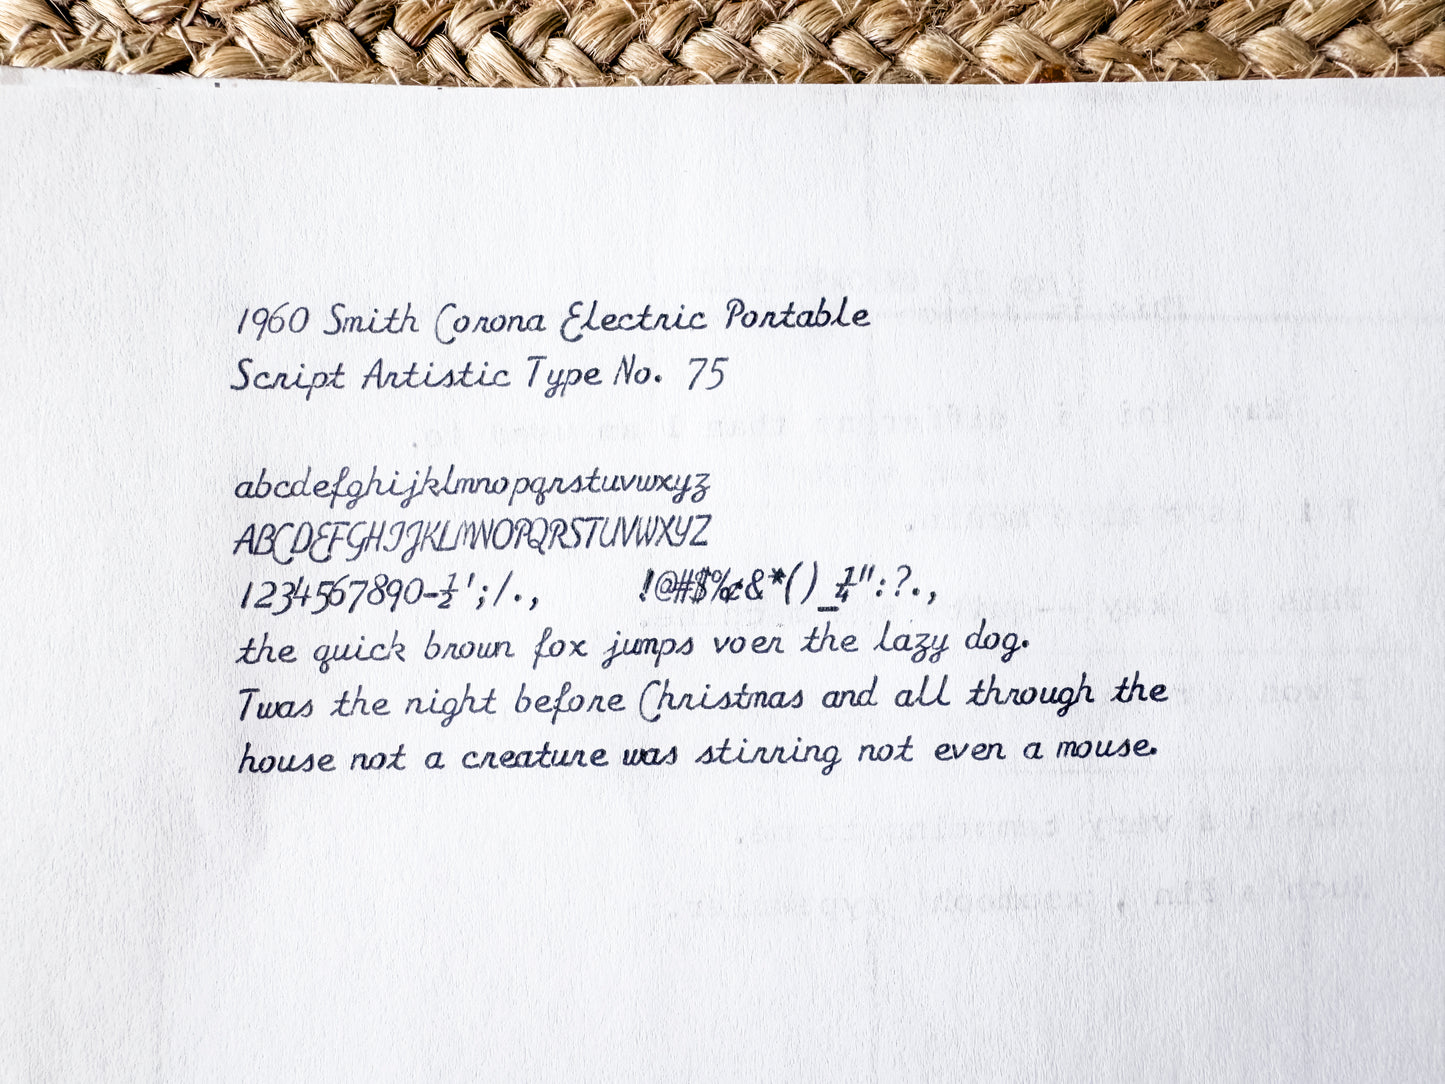 1960 Smith Corona Electric Portable
Script Artistic Type No. 75
abcdefghijklmnopqrstuvwxyz
ABCDEFGHIJKLMNOPQRSTUVWXYZ
1234567890-½';/.,  !@#$%¢&*()_¼":?.,
the quick brown fox jumps voer the lazy dog.
Twas the night before Christmas and all through the
house not a creature was stirring not even a mouse.